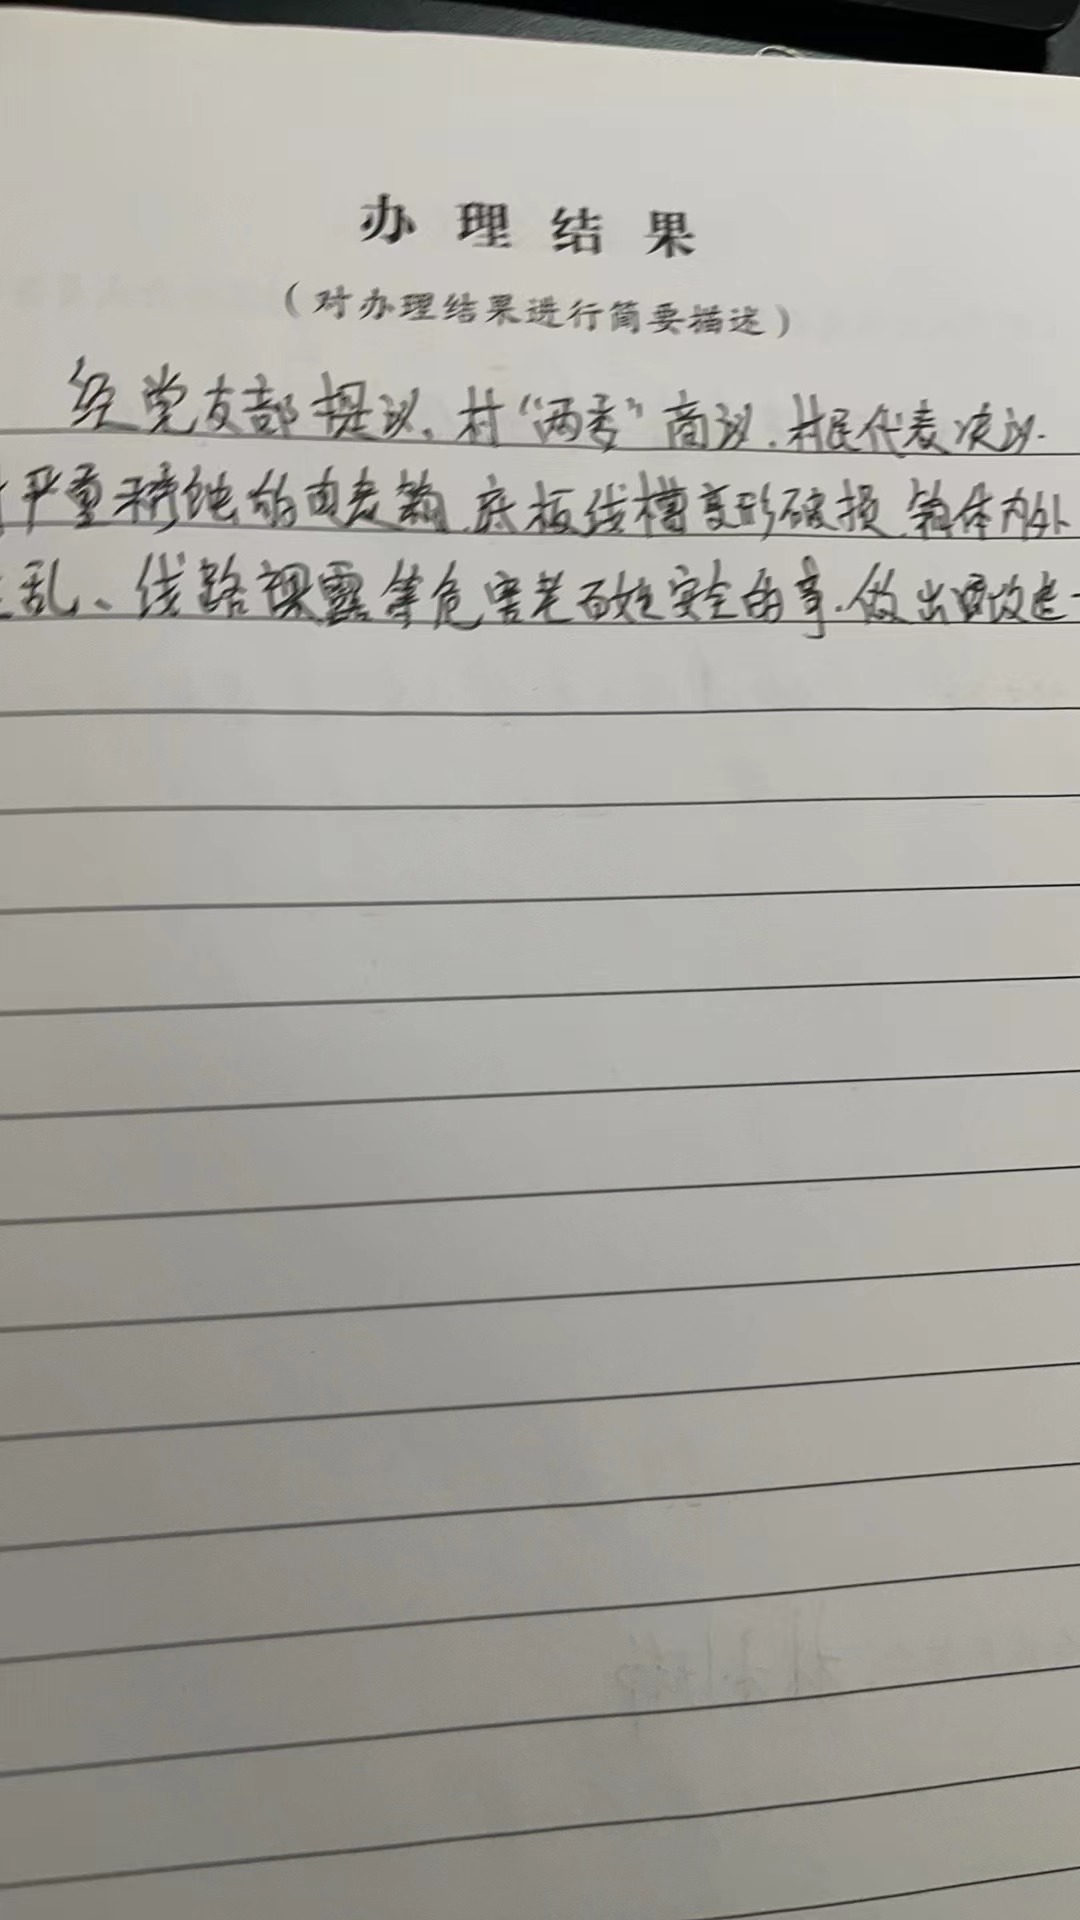 办理结果
（对办理结果进行简要描述）
经党支部提议、村“两委”商议、村民代表决议.
严重锈蚀的电表箱、底板线槽变形破损、箱体内外
乱、线路裸露等危害老百姓安全的事.做出要改造